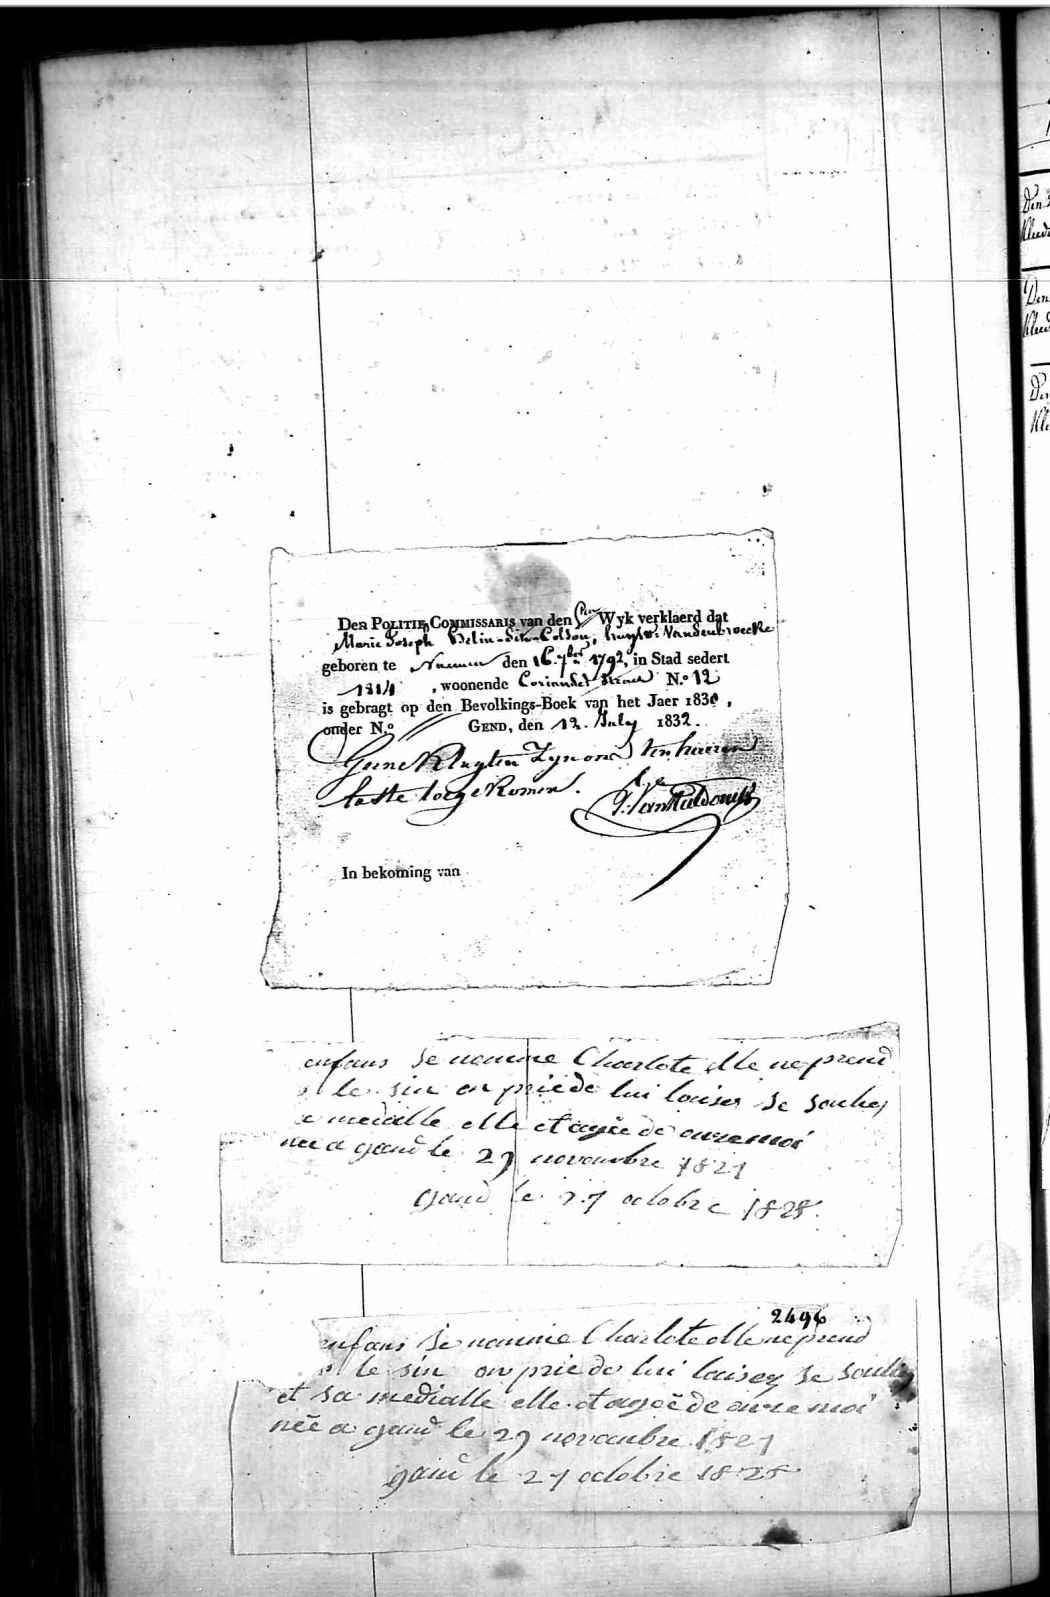 Den Politie Commissaris van den Wyk verklaerd dat
Marie Joseph Belin huysv. Vandenbroecke
geboren te Namur den 16. 7ber 1792, in Stad sedert
1814, woonende Coriander straet N.o 12
is gebragt op den Bevolkings-Boek van het Jaer 1830,
onder N.o Gend, den 12. July 1832.
In bekoming van
enfans se nomme Charlote elle ne prend
le sin on prie de lui laiser se soulie
e medaille elle et agée de onze moi
née a gand le 27 novembre 1827
gand le 27 octobre 1828.
2496
enfans se nomme Charlote elle ne prend
le sin on prie de lui laisez se soulie
et sa medialle elle et ageé de onze moi
néé a gand le 27 novembre 1827
gand le 27 octobre 1828
Den
Kleed
Den
Kleed
Den
Kle